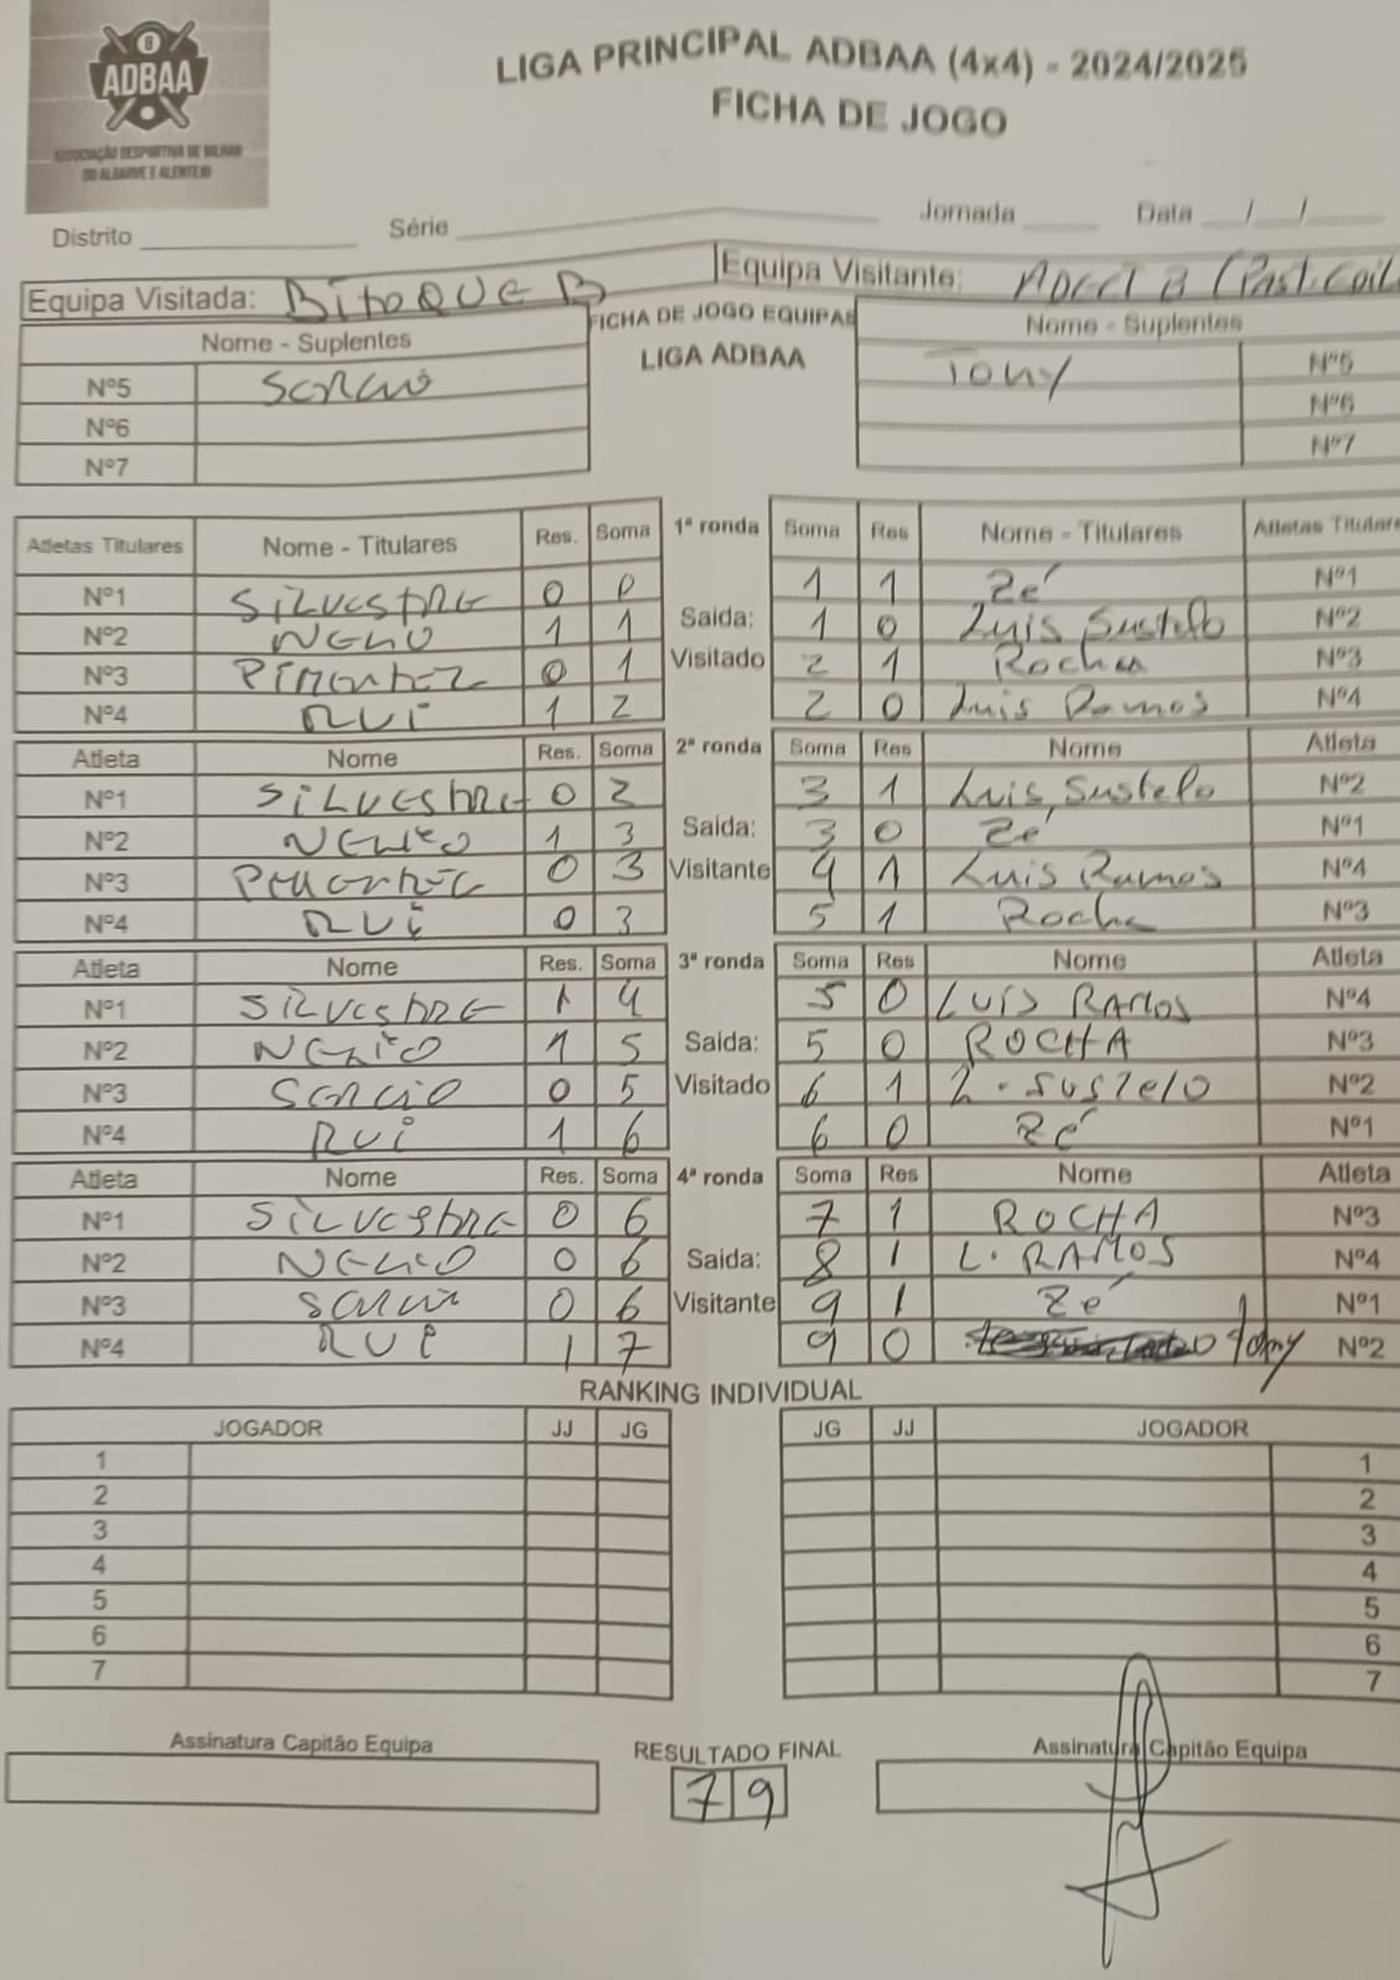 8
ADBAA
ASSOCIAÇÃO DESPORTIVA DE BILHAR
DO ALGARVE E ALENTEJO
LIGA PRINCIPAL ADBAA (4x4) - 2024/2025
FICHA DE JOGO
Distrito Série Jornada Data / /
Equipa Visitada: BITOQUE B Equipa Visitante: B (Past.
Nome - Suplentes FICHA DE JOGO EQUIPAS Nome - Suplentes
LIGA ADBAA
Nº5 SERGIO Tony Nº5
Nº6 Nº6
Nº7 Nº7
Atletas Titulares Nome - Titulares Res. Soma 1ª ronda Soma Res Nome - Titulares Atletas Titulare
Nº1 SILVESTRE 0 0 1 1 Zé Nº1
Nº2 NELIO 1 1 Saida: 1 0 Luis Sustelo Nº2
Nº3 PIMENTEL 0 1 Visitado 2 1 Rocha Nº3
Nº4 RUI 1 2 2 0 Luis Ramos Nº4
Atleta Nome Res. Soma 2ª ronda Soma Res Nome Atleta
Nº1 SILVESTRE 0 2 3 1 Luis Sustelo Nº2
Nº2 NELIO 1 3 Saida: 3 0 Zé Nº1
Nº3 PIMENTEL 0 3 Visitante 4 1 Luis Ramos Nº4
Nº4 RUI 0 3 5 1 Rocha Nº3
Atleta Nome Res. Soma 3ª ronda Soma Res Nome Atleta
Nº1 SILVESTRE 1 4 5 0 LUIS RAMOS Nº4
Nº2 NELIO 1 5 Saida: 5 0 ROCHA Nº3
Nº3 SERGIO 0 5 Visitado 6 1 L. SUSTELO Nº2
Nº4 RUI 1 6 6 0 Zé Nº1
Atleta Nome Res. Soma 4ª ronda Soma Res Nome Atleta
Nº1 SILVESTRE 0 6 7 1 ROCHA Nº3
Nº2 NELIO 0 6 Saida: 8 1 L. RAMOS Nº4
Nº3 SERGIO 0 6 Visitante 9 1 Zé Nº1
Nº4 RUI 1 7 9 0 Tony Nº2
RANKING INDIVIDUAL
JOGADOR JJ JG JG JJ JOGADOR
1 1
2 2
3 3
4 4
5 5
6 6
7 7
Assinatura Capitão Equipa RESULTADO FINAL Assinatura Capitão Equipa
7 9